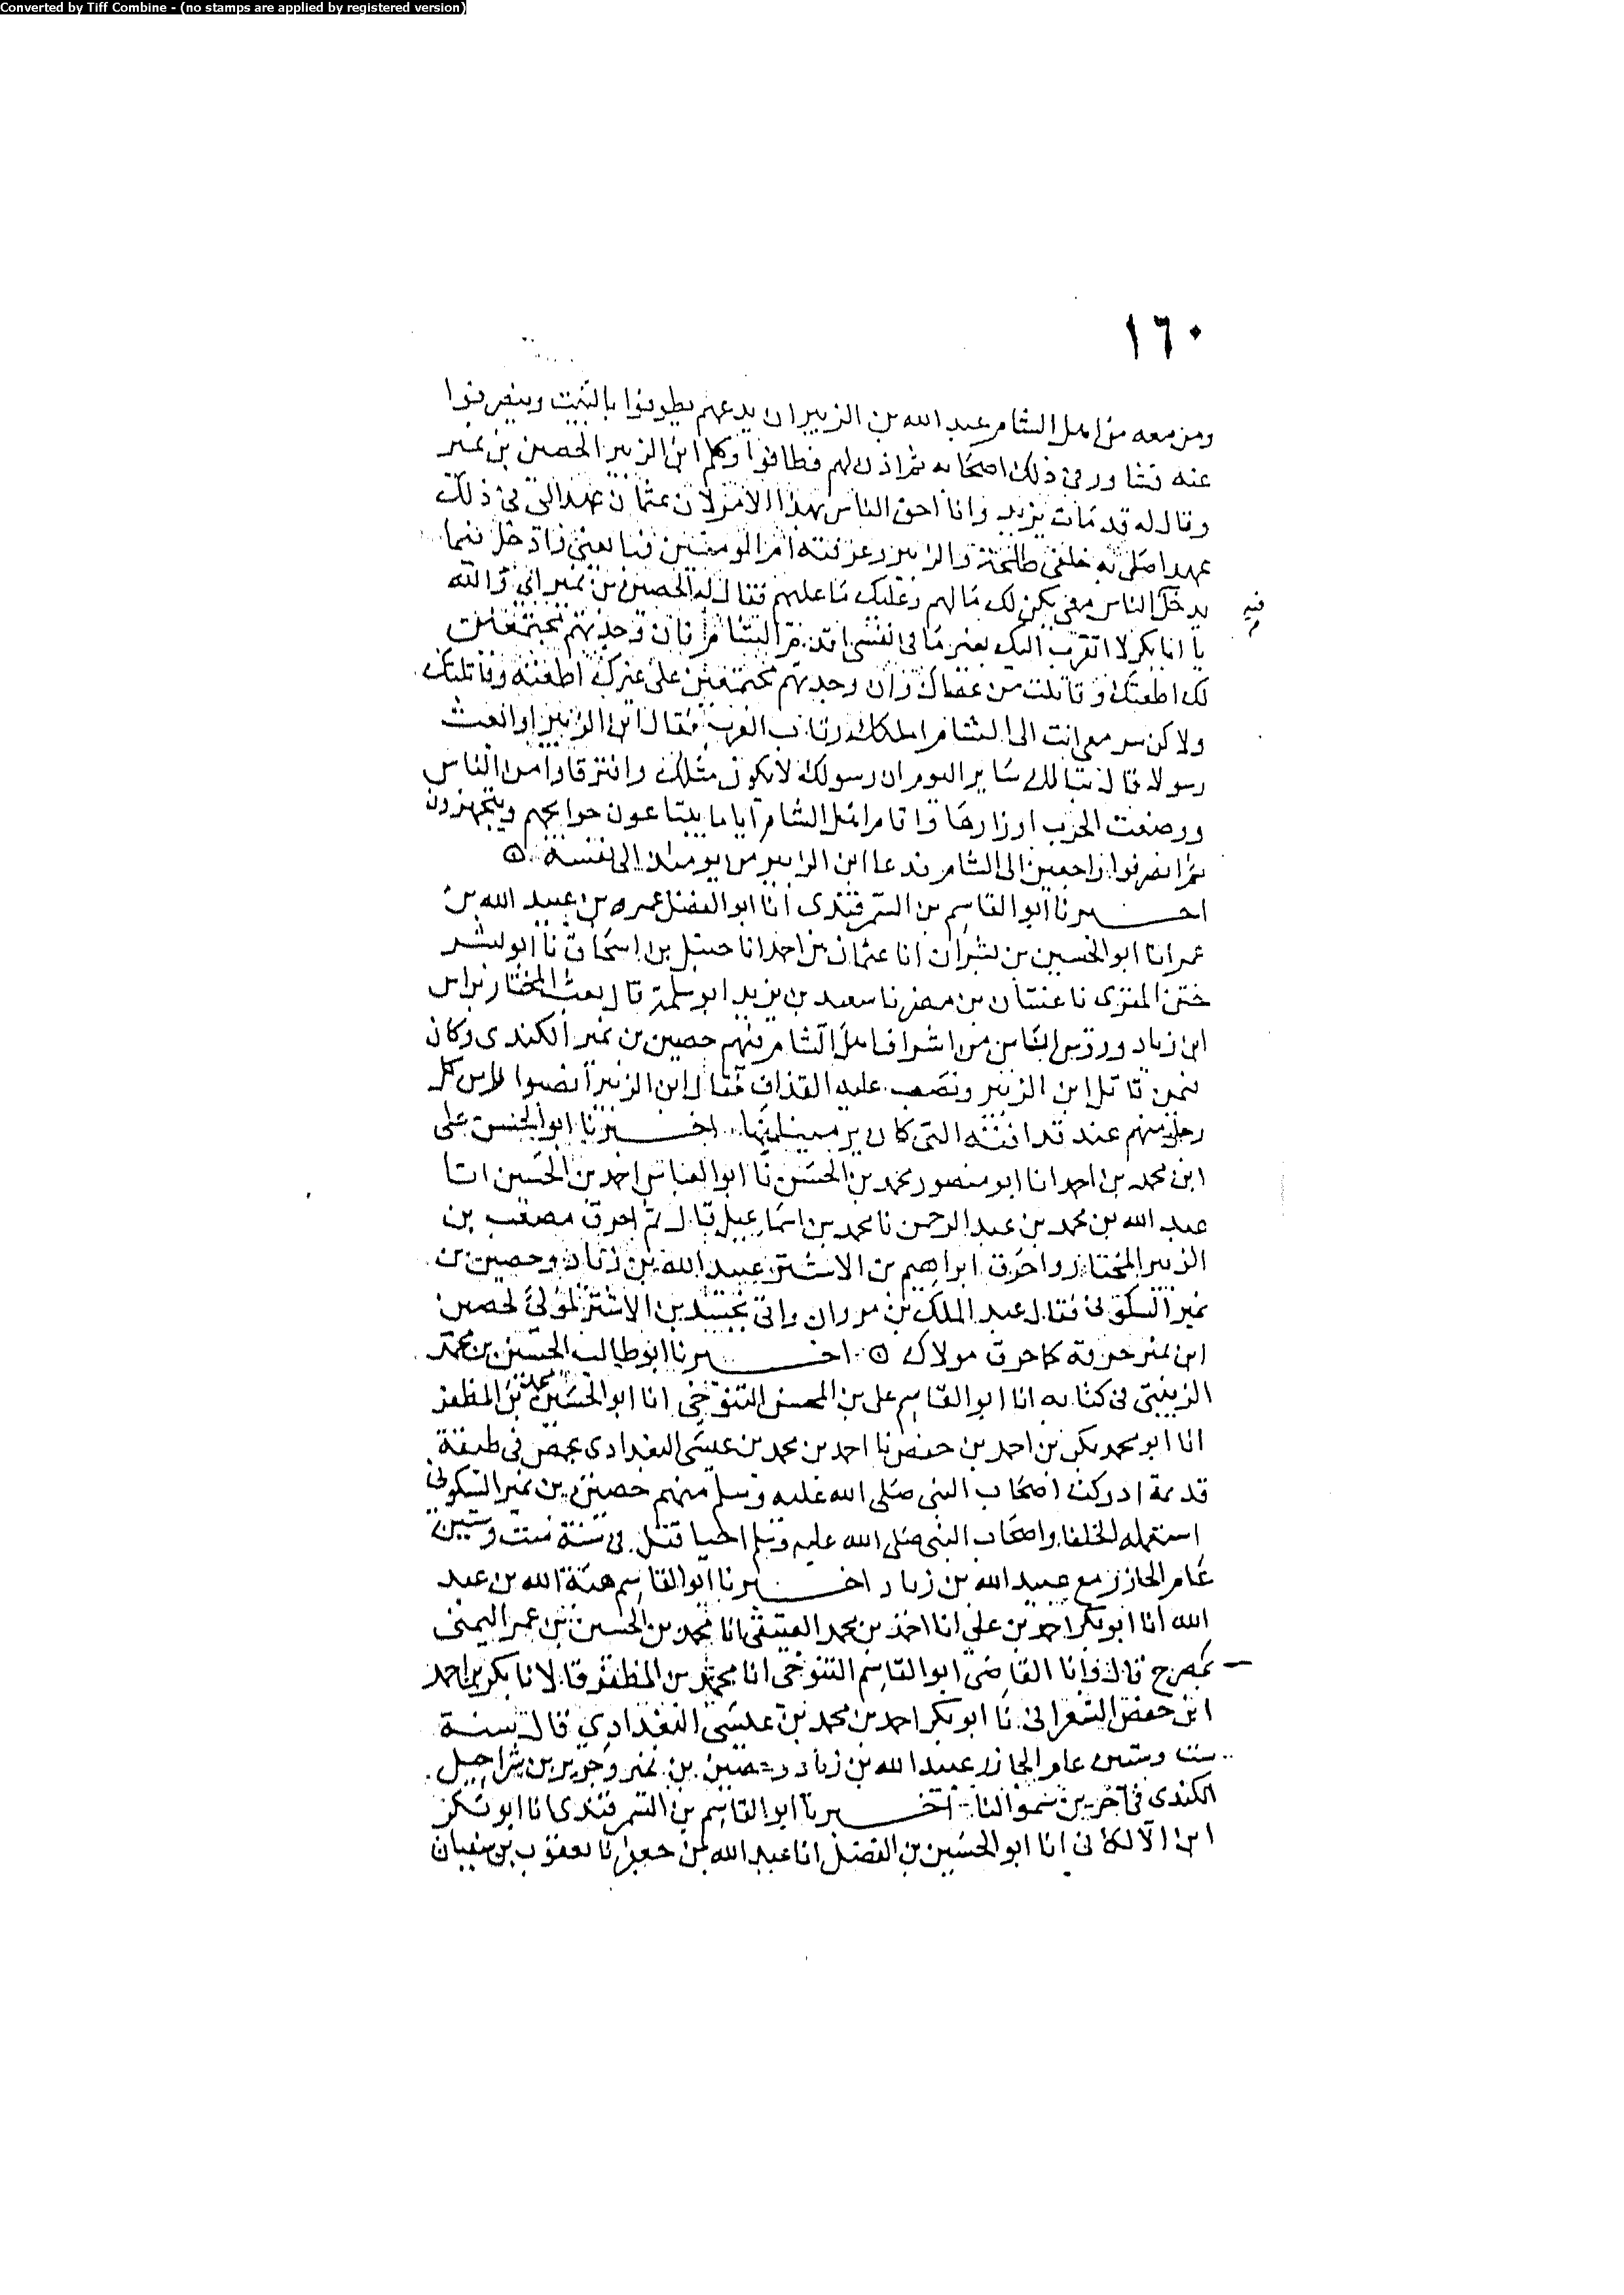 Converted by Tiff Combine - (no stamps are applied by registered version)
١٦٠
ومن معه من اهل الشام عبد الله بن الزبير ان يدعهم يطوفوا بالبيت وينصرفوا
عنه فشاور في ذلك اصحابه ثم اذن لهم فطافوا وكلم ابن الزبير الحصين بن نمير
وقال له قد مات يزيد وانا احق الناس بهذا الامر لان عثمان عهد الي في ذلك
عهدا صلى به خلفي طلحة والزبير وعرفته ام المومنين فبايعني وادخل فيما
يدخل الناس معي يكن لك ما لهم وعليك ما عليهم فقال له الحصين بن نمير اني والله
فيه
يا ابا بكر لا اتقرب اليك بغير ما في نفسي اقدم الشام فان وجدتهم مجتمعين
لك اطعتك وقاتلت من عصاك وان وجدتهم مجتمعين على غيرك اطعته وقاتلتك
ولاكن سر معي انت الى الشام املكك رقاب العرب فقال ابن الزبير او ابعث
رسولا قال تبا لك ساير اليوم ان رسولك لا يكون مثلك وافترقا وامن الناس
ووضعت الحرب اوزارها واقام اهل الشام اياما يبتاعون حوايجهم ويتجهزون
ثم انصرفوا راجعين الى الشام فدعا ابن الزبير من يومئذ الى نفسه
اخبرنا ابو القاسم بن السمرقندي انا ابو الفضل عمر بن عبيد الله بن
عمر انا ابو الحسين بن بشران انا عثمان بن احمد انا حنبل بن اسحاق نا ابو بشر
ختن المقرى نا غسان بن مضر نا سعيد بن يزيد ابو سلمة قال بعث المختار براس
ابن زياد ورؤس الناس من اشراف اهل الشام منهم حصين بن نمير الكندي وكان
فيمن قاتل ابن الزبير ونصب عليه القذاف فقال ابن الزبير انصبوا راس كل
رجل منهم عند قذافته التي كان يرمينا منها اخبرنا ابو الحسن علي
ابن محمد بن احمد انا ابو منصور محمد بن الحسن نا ابو العباس احمد بن الحسين انا
عبد الله بن محمد بن عبد الرحمن نا محمد بن اسماعيل قال ثم احرق مصعب بن
الزبير المختار واحرق ابراهيم بن الاشتر عبيد الله بن زياد وحصين بن
نمير السكوني فقال عبد الملك بن مروان واتى بجسد بن الاشتر لمولى لحصين
ابن نمير حرقه كما حرق مولاك اخبرنا ابو طالب الحسين بن محمد
الزينبي في كتابه انا ابو القاسم علي بن المحسن التنوخي انا ابو الحسين محمد بن المظفر
انا ابو محمد بكر بن احمد بن حفص نا احمد بن محمد بن عيسى البغدادي بحمص في طبقة
قديمة ادركت اصحاب النبي صلى الله عليه وسلم منهم حصين بن نمير السكوني
استعمله الخلفا واصحاب النبي صلى الله عليه وسلم احيا قتل في سنة ست وستين
عام الخازر مع عبيد الله بن زياد اخبرنا ابو القاسم هبة الله بن عبد
الله انا ابو بكر احمد بن علي انا احمد بن محمد العتيقي انا محمد بن الحسين بن عمر اليمني
بمصر ح قال وانا القاضي ابو القاسم التنوخي انا محمد بن المظفر قالا نا بكر بن احمد
ابن حفص الشعراني نا ابو بكر احمد بن محمد بن عيسى البغدادي قال سنة
ست وستين عام الخازر عبيد الله بن زياد وحصين بن نمير وجرير بن شراحيل
الكندي في اخرين سموا لنا اخبرنا ابو القاسم بن السمرقندي انا ابو بكر
ابن اللالكائي انا ابو الحسين بن الفضل انا عبد الله بن جعفر نا يعقوب بن سفيان